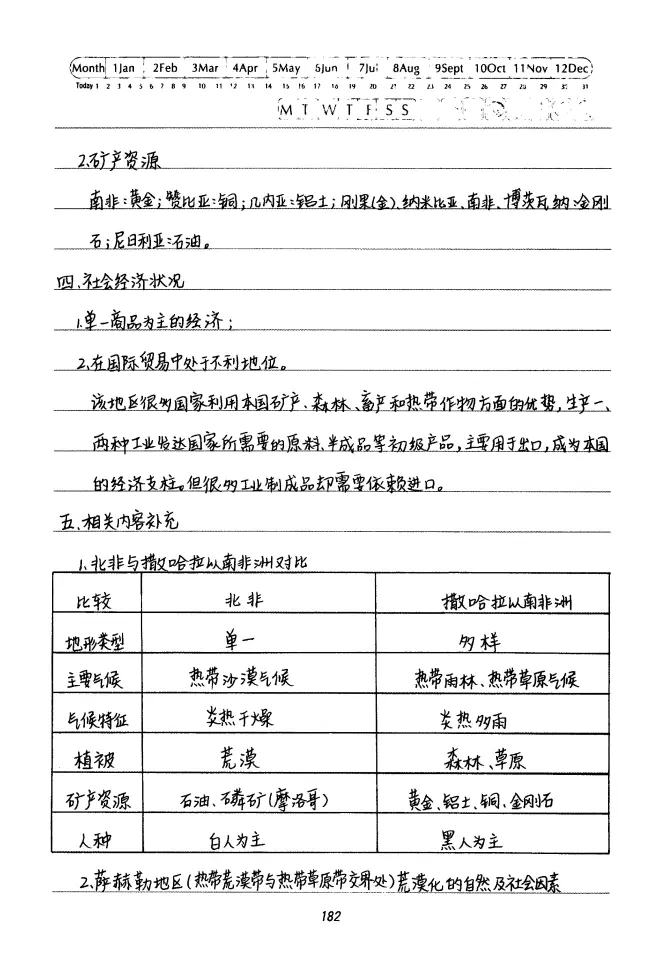 Month 1Jan 2Feb 3Mar 4Apr 5May 6Jun 7Jul 8Aug 9Sept 10Oct 11Nov 12Dec
Today 1 2 3 4 5 6 7 8 9 10 11 12 13 14 15 16 17 18 19 20 21 22 23 24 25 26 27 28 29 30 31
M T W T F S S
2.矿产资源
南非:黄金;赞比亚:铜;几内亚:铝土;刚果(金)、纳米比亚、南非、博茨瓦纳:金刚
石;尼日利亚:石油。
四、社会经济状况
1.单一商品为主的经济;
2.在国际贸易中处于不利地位。
该地区很多国家利用本国矿产、森林、畜产和热带作物方面的优势,生产一、
两种工业发达国家所需要的原料、半成品等初级产品,主要用于出口,成为本国
的经济支柱。但很多工业制成品却需要依赖进口。
五、相关内容补充
1.北非与撒哈拉以南非洲对比
比较 北非 撒哈拉以南非洲
地形类型 单一 多样
主要气候 热带沙漠气候 热带雨林、热带草原气候
气候特征 炎热干燥 炎热多雨
植被 荒漠 森林、草原
矿产资源 石油、磷矿(摩洛哥) 黄金、铝土、铜、金刚石
人种 白人为主 黑人为主
2.萨赫勒地区(热带荒漠带与热带草原带交界处)荒漠化的自然及社会因素
182